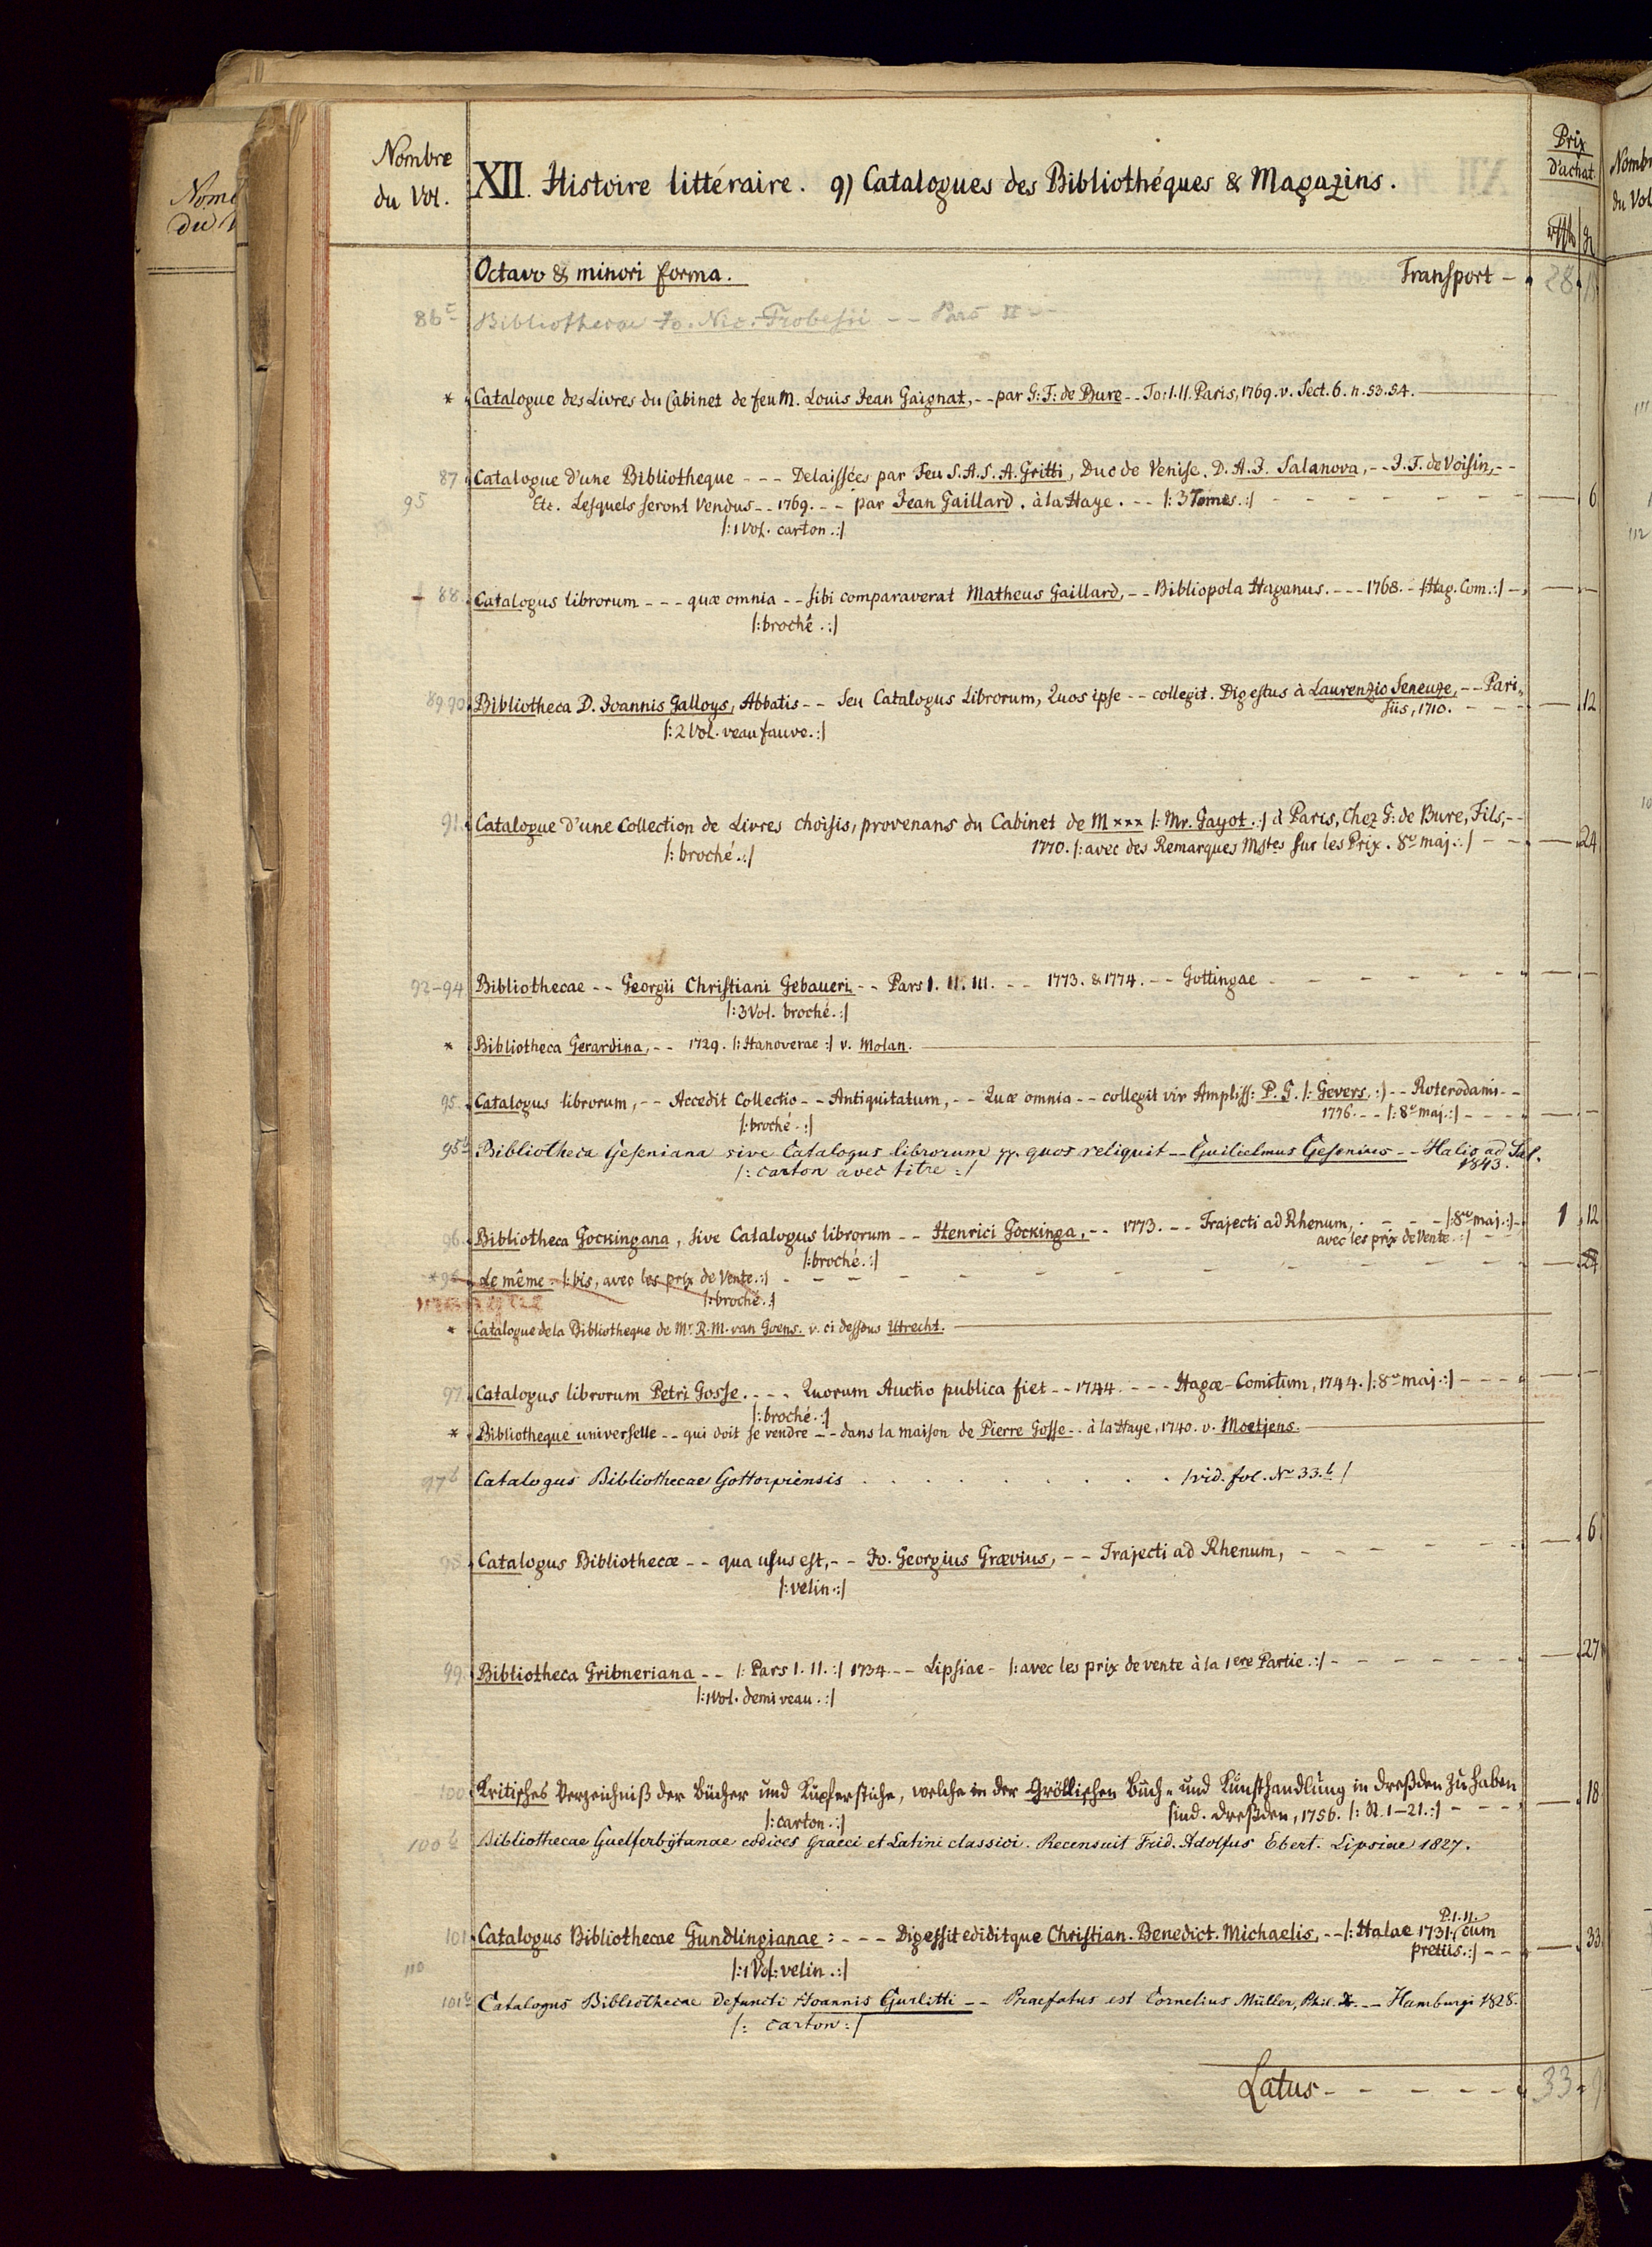 Nombre
du Vol.
XII. Histoire littéraire. 9) Catalogues des Bibliothéques & Magazins.
Prix
d'achat.
Octavo & minori forma. Transport - 28
86c Bibliothecae Jo. Nic. Frobesii -- Pars II --
* Catalogue des Livres du Cabinet de feu M. Louis Jean Gaignat, -- par G: F: de Bure -- To: I. II. Paris, 1769. v. Sect. 6. n. 53. 54.
87 Catalogue d'une Bibliotheque --- Delaissées par Feu S. A. S. A. Gritti, Duc de Venise. D. A. J. Salanova, -- J. F. de Voisin, --
95 Etc. Lesquels seront Vendus -- 1769. -- par Jean Gaillard. à la Haye. -- |: 3 Tomes. :| - - - 6
|: 1 Vol. carton. :|
88. Catalogus librorum --- quæ omnia -- sibi comparaverat Matheus Gaillard, -- Bibliopola Haganus. --- 1768. - |: Hag. Com. :| - - -
|: broché. :|
89. 90. Bibliotheca D. Joannis Galloys, Abbatis -- Seu Catalogus Librorum, Quos ipse -- collegit. Digestus à Laurenzio Seneuze, -- Pari„
siis, 1710. - - - 12
|: 2 Vol. veau fauve. :|
91. Catalogue d'une Collection de Livres choisis, provenans du Cabinet de M xxx |: Mr. Gayot. :| à Paris, Chez G: de Bure, Fils, --
|: broché. :| 1770. |: avec des Remarques Mstes sur les Prix. 8vo maj. :| - - 24
92-94 Bibliothecae -- Georgii Christiani Gebaueri -- Pars I. II. III. -- 1773. & 1774. -- Gottingae - - -
|: 3 Vol. broché. :|
* Bibliotheca Gerardina, -- 1729. |: Hanoverae :| v. Molan.
95. Catalogus librorum, -- Accedit Collectio -- Antiquitatum, -- Quæ omnia -- collegit vir Ampliss: P. G. |: Gevers. :| -- Roterodami --
|: broché. :| 1776. -- |: 8vo maj. :| - - -
95b Bibliotheca Geseniana sive Catalogus librorum pp. quos reliquit -- Guilielmus Gesenius -- Halis ad Sal.
|: carton avec titre :| 1843.
96. Bibliotheca Gockingana, sive Catalogus librorum -- Henrici Gockinga, -- 1773. -- Trajecti ad Rhenum, - - - |: 8vo maj. :| - 1 12
avec les prix de Vente. :|
|: broché. :|
*96 Le même. |: bis, avec les prix de Vente. :| - - - 24
|: broché. :|
* Catalogue de la Bibliotheque de Mr. R. M. van Goens. v. ci dessous Utrecht.
97. Catalogus librorum Petri Gosse. --- Quorum Auctio publica fiet -- 1744. --- Hagæ-Comitum, 1744. |: 8vo maj. :| - - -
|: broché. :|
* Bibliotheque universelle -- qui doit se vendre -- dans la maison de Pierre Gosse -- à la Haye, 1740. v. Moetjens.
97b Catalogus Bibliothecae Gottorpiensis . . . . . . . . |vid. fol. No 33.b|
98. Catalogus Bibliothecæ -- qua usus est, -- Jo. Georgius Grævius, -- Trajecti ad Rhenum, - - - 6
|: velin. :|
99. Bibliotheca Gribneriana -- |: Pars I. II. :| 1734 -- Lipsiae - |: avec les prix de vente à la 1ere Partie. :| - - - 27
|: 1 Vol. demi veau. :|
100. Kritisches Verzeichniß der Bücher und Kupferstiche, welche in der Gröllischen Buch- und Kunsthandlung in Dreßden zu haben
sind. Dreßden, 1756. |: N. 1-21. :| - - - 18
|: carton. :|
100b Bibliothecae Guelferbytanae codices Graeci et Latini classici. Recensuit Frid. Adolfus Ebert. Lipsiae 1827.
101. Catalogus Bibliothecae Gundlingianae: --- Digessit ediditque Christian. Benedict. Michaelis, -- |: Halae 1731. P. I. II. cum
pretiis. :| - - 33
110 |: 1 Vol: velin. :|
101b Catalogus Bibliothecae defuncti Joannis Gurlitti -- Praefatus est Cornelius Müller, Phil. Dr. -- Hamburgi 1828.
|: carton :|
Latus - - - 33